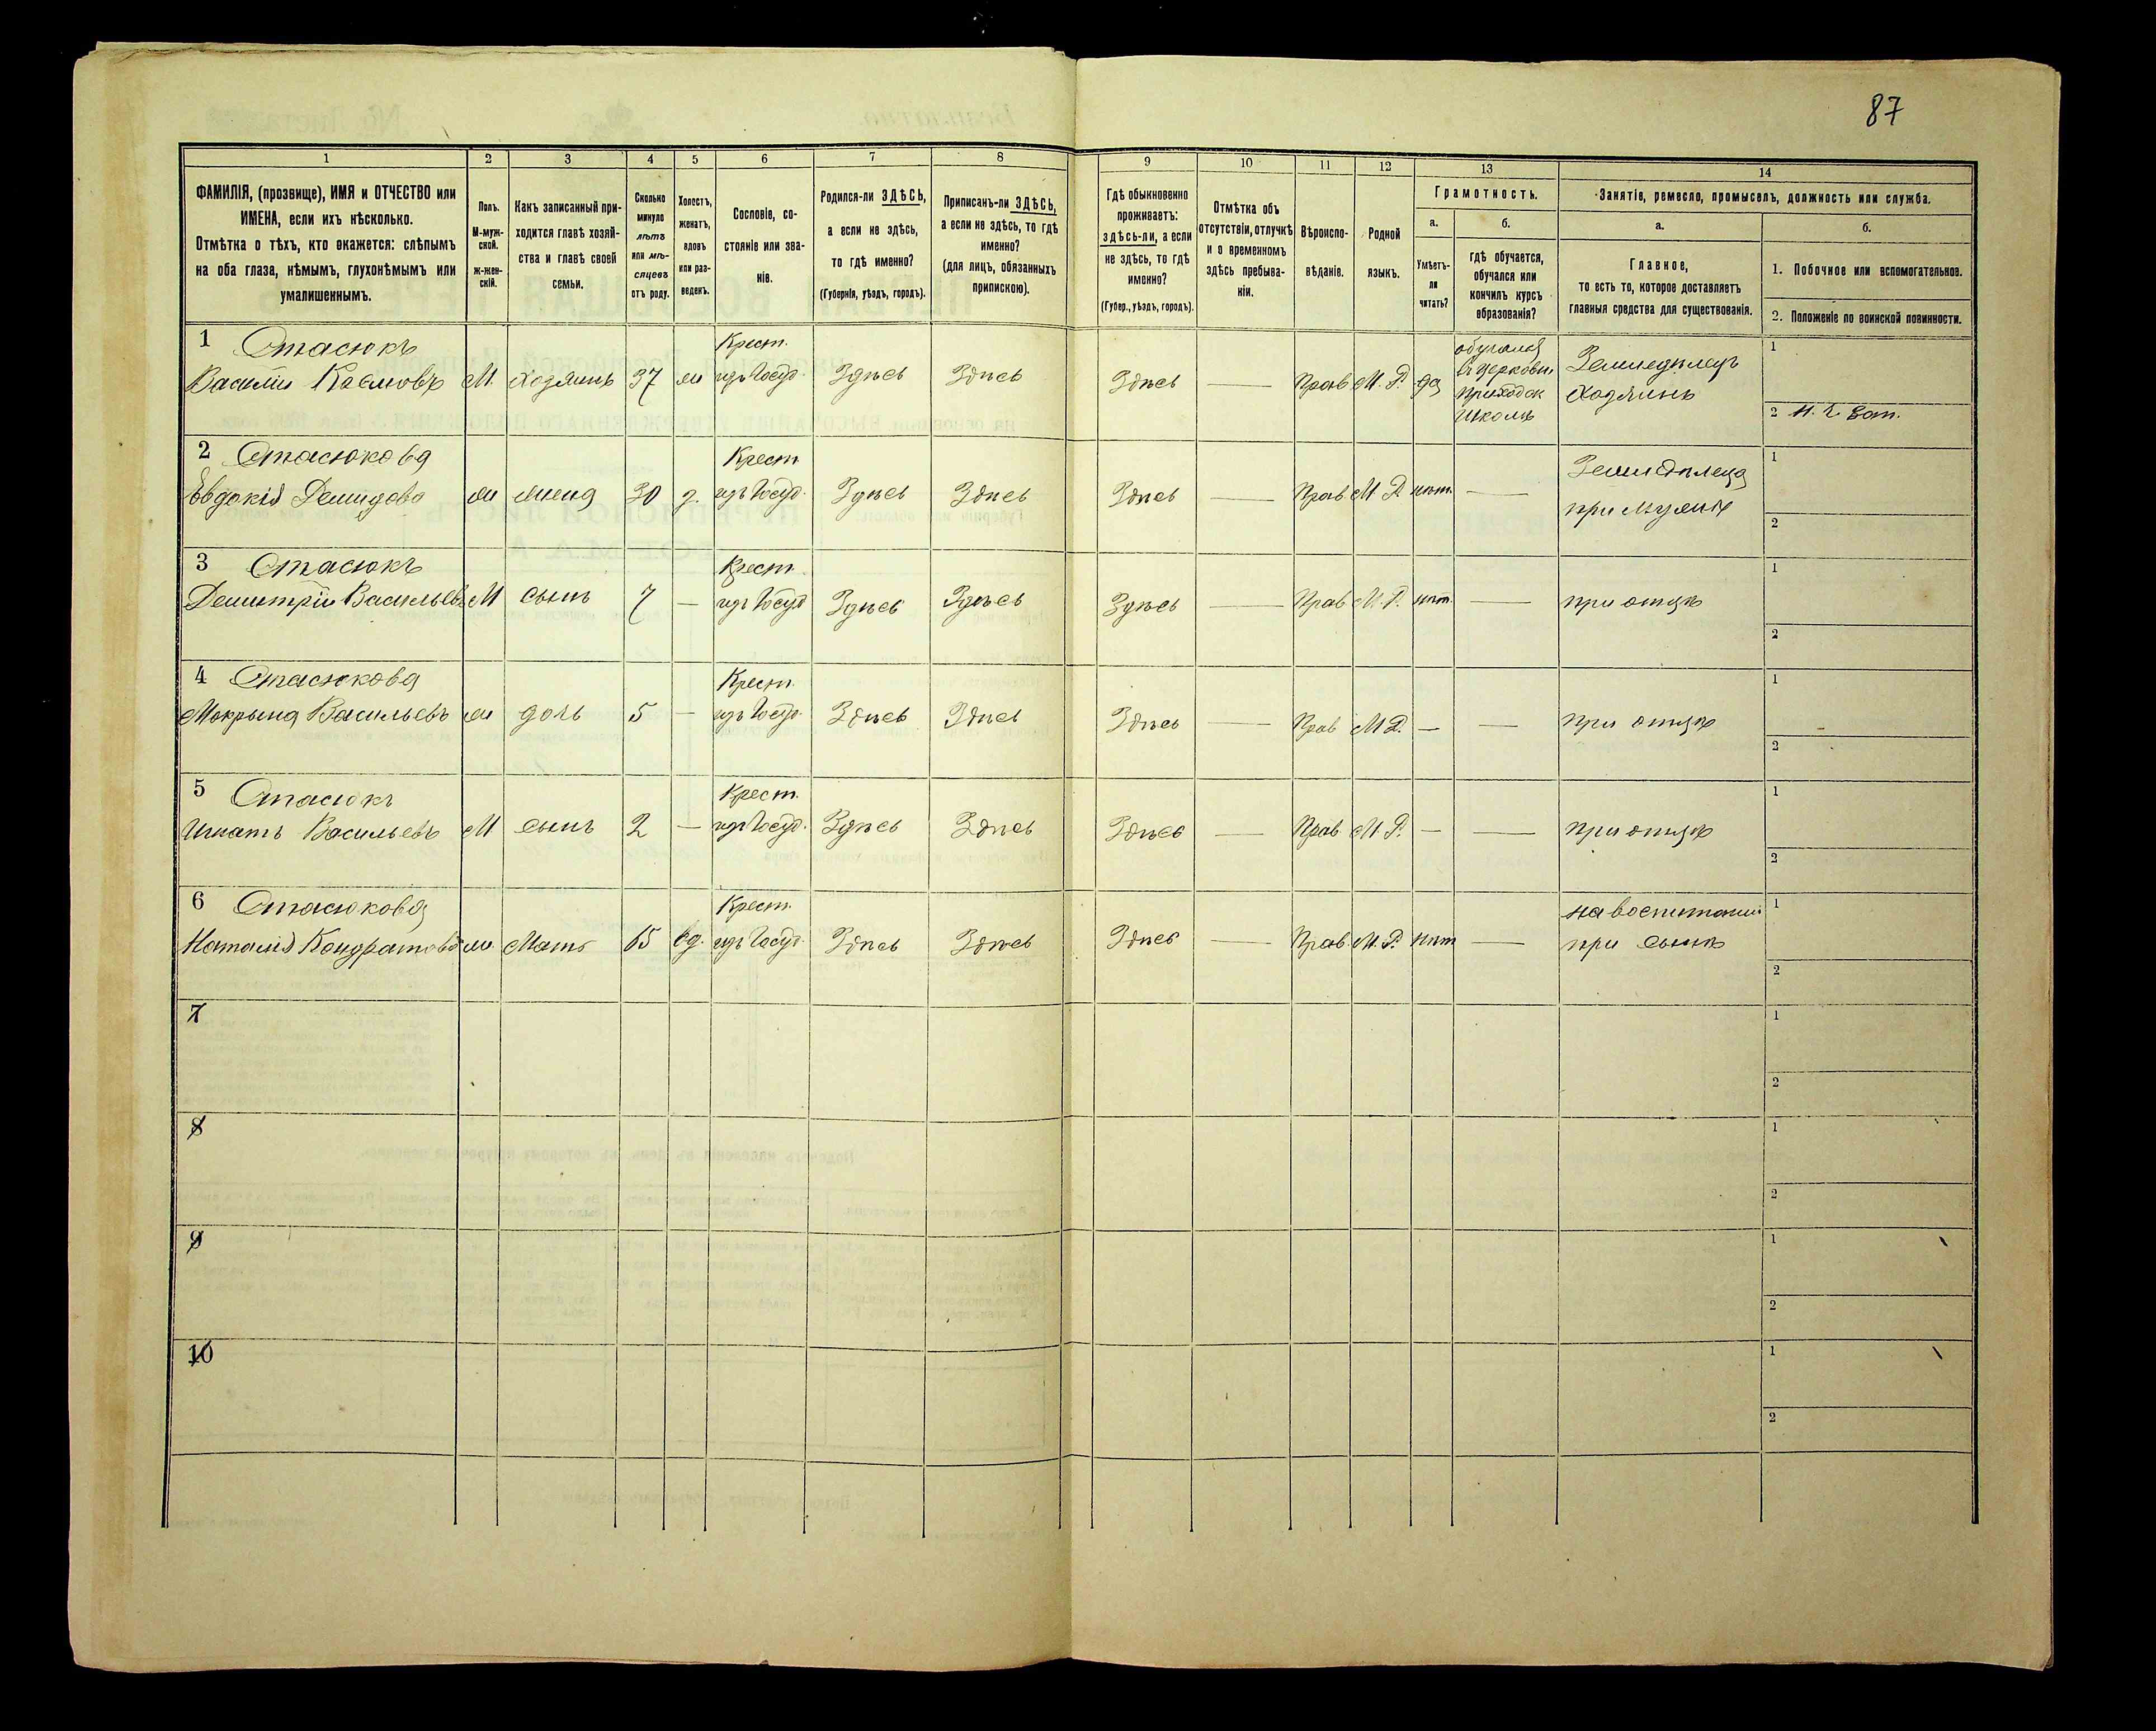 87
1 2 3 4 5 6 7 8 9 10 11 12 13 14
ФАМИЛІЯ, (прозвище), ИМЯ и ОТЧЕСТВО или
ИМЕНА, если ихъ нѣсколько.
Отмѣтка о тѣхъ, кто окажется: слѣпымъ
на оба глаза, нѣмымъ, глухонѣмымъ или
умалишеннымъ.
Полъ.
М-муж-
ской.
Ж-жен-
скій.
Какъ записанный при-
ходится главѣ хозяй-
ства и главѣ своей
семьи.
Сколько
минуло
лѣтъ
или мѣ-
сяцевъ
отъ роду.
Холостъ,
женатъ,
вдовъ
или раз-
веденъ.
Сословіе, со-
стояніе или зва-
ніе.
Родился-ли ЗДѢСЬ,
а если не здѣсь,
то гдѣ именно?
(Губернія, уѣздъ, городъ).
Приписанъ-ли ЗДѢСЬ,
а если не здѣсь, то гдѣ
именно?
(для лицъ, обязанныхъ
припискою).
Гдѣ обыкновенно
проживаетъ:
здѣсь-ли, а если
не здѣсь, то гдѣ
именно?
(Губер., уѣздъ, городъ).
Отмѣтка объ
отсутствіи, отлучкѣ
и о временномъ
здѣсь пребыва-
ніи.
Вѣроиспо-
вѣданіе.
Родной
языкъ.
Грамотность.
а.
Умѣетъ-
ли
читать?
б.
гдѣ обучается,
обучался или
кончилъ курсъ
образованія?
Занятіе, ремесло, промыселъ, должность или служба.
а.
Главное,
то есть то, которое доставляетъ
главныя средства для существованія.
б.
1. Побочное или вспомогательное.
2. Положеніе по воинской повинности.
1 Стасюкъ Крест. обучался Земледѣлецъ 1
Василій М. Хозяинъ 37 ж изъ Госуд. Здѣсь Здѣсь Здѣсь — Прав М. Р. да въ церковн. Хозяинъ
приходск
школѣ 2
2 Стасюкова Крест Земледѣлецъ 1
Евдокія Демидова ж жена 30 з. изъ Госуд. Здѣсь Здѣсь Здѣсь — Прав М Р нѣт. — при мужѣ
2
3 Стасюкъ Крест. 1
Демитрій Васильевъ М сынъ 7 — изъ Госуд Здѣсь Здѣсь Здѣсь — Прав М. Р. нѣт. — при отцѣ
2
4 Стасюкова Крест. 1
Мокрына Васильевъ ж дочь 5 — изъ Госуд. Здѣсь Здѣсь Здѣсь — Прав М Р. — — при отцѣ
2
5 Стасюкъ Крест. 1
Игнатъ Васильевъ М сынъ 2 — изъ Госуд. Здѣсь Здѣсь Здѣсь — Прав М. Р. — — при отцѣ
2
6 Стасюкова Крест. на воспитаніи 1
Наталія Кондратова ж. Мать 65 вд. изъ Госуд. Здѣсь Здѣсь Здѣсь — Прав. М. Р. нѣт — при сынѣ
2
7 1
2
8 1
2
9 1
2
10 1
2